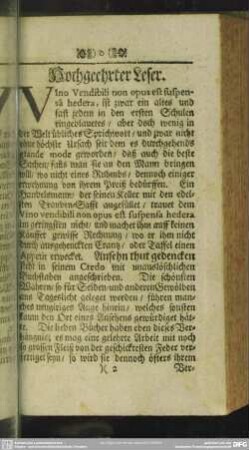 Hochgeehrter Leser.
VIno Vendibili non opus est suspen-
sâ hedera, ist zwar ein altes und
fast jedem in den ersten Schulen
eingebläuetes, aber doch wenig in
der Welt übliches Sprichwort, und zwar nicht
ohne höchste Ursach seit dem es durchgehends
mode geworden, daß auch die beste
Sachen, falls man Sie an den Mann bringen
will, wo nicht eines Ruhmbs, dennoch einiger
erwehnung von ihrem Preiß bedürffen. Ein
Handelsmann, der seinen Keller mit den edel-
sten Trauben-Safft angefüllet, trauet dem
Vino vendibili non opus est suspensa hedera
im geringsten nicht, und machet ihm auff keinen
Käuffer gewisse Rechnung, wo er ihn nicht
durch ausgehenckten Crantz, oder Taffel einen
Appetit erwecket. Ansehn thut gedencken
steht in seinem Credo mit unauslöschlichen
Buchstaben angeschrieben. Die schönsten
Wahren, so für Seiden und anderen Gewölben
ans Tageslicht geleget werden, führen man-
ches neugieriges Auge hinein, welches sonsten
kaum den Ort eines Ansehens gewürdiget hät-
te. Die lieben Bücher haben eben dieses Ver-
hängnüß, es mag eine gelehrte Arbeit mit noch
so grossen Fleiß von der geschicktesten Feder ver-
fertiget seyn, so wird sie dennoch öffters ihrem
)( 2 Ver-